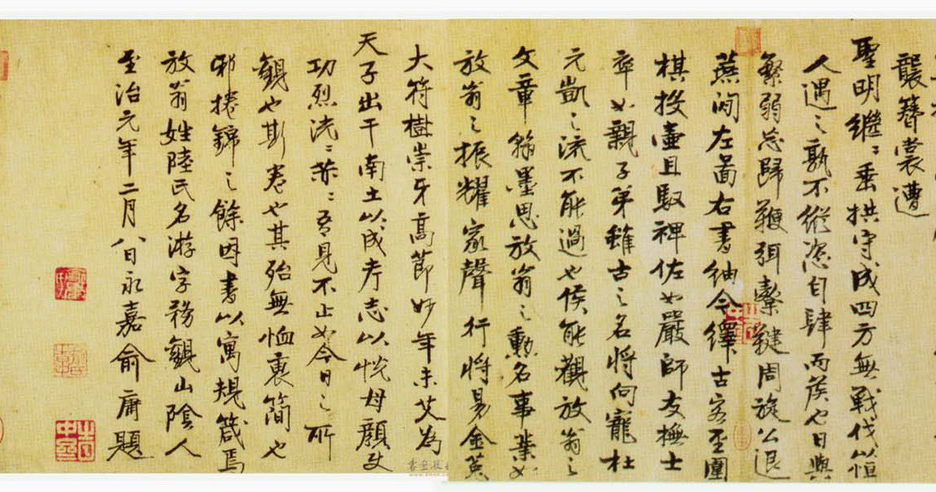 襲簪裳遭
聖明繼〻垂拱守成四方無戰伐以恒
人遇之孰不縱恣自肆而侯也日與
繁弱忘歸鞬弭櫜鞬周旋公退
燕閒左圖右書紬今繹古客至圍
棋投壺且馭裨佐如嚴師友撫士
卒如親子弟雖古之名將何寵杜
元凱之流不能過也侯能觀放翁之
文章翰墨思放翁之勳名事業如
放翁之振耀家聲行將易金英
大符樹崇牙高節妙年未艾為
天子出干南土以成考志以悅母顏丈
功烈洸〻赫〻吾見不止如今日之所
觀也斯卷也其殆無恤裏簡也
邪捲錦之餘因書以寓規箴焉
放翁姓陸氏名游字務觀山陰人
至治元年二月八日永嘉俞庸題